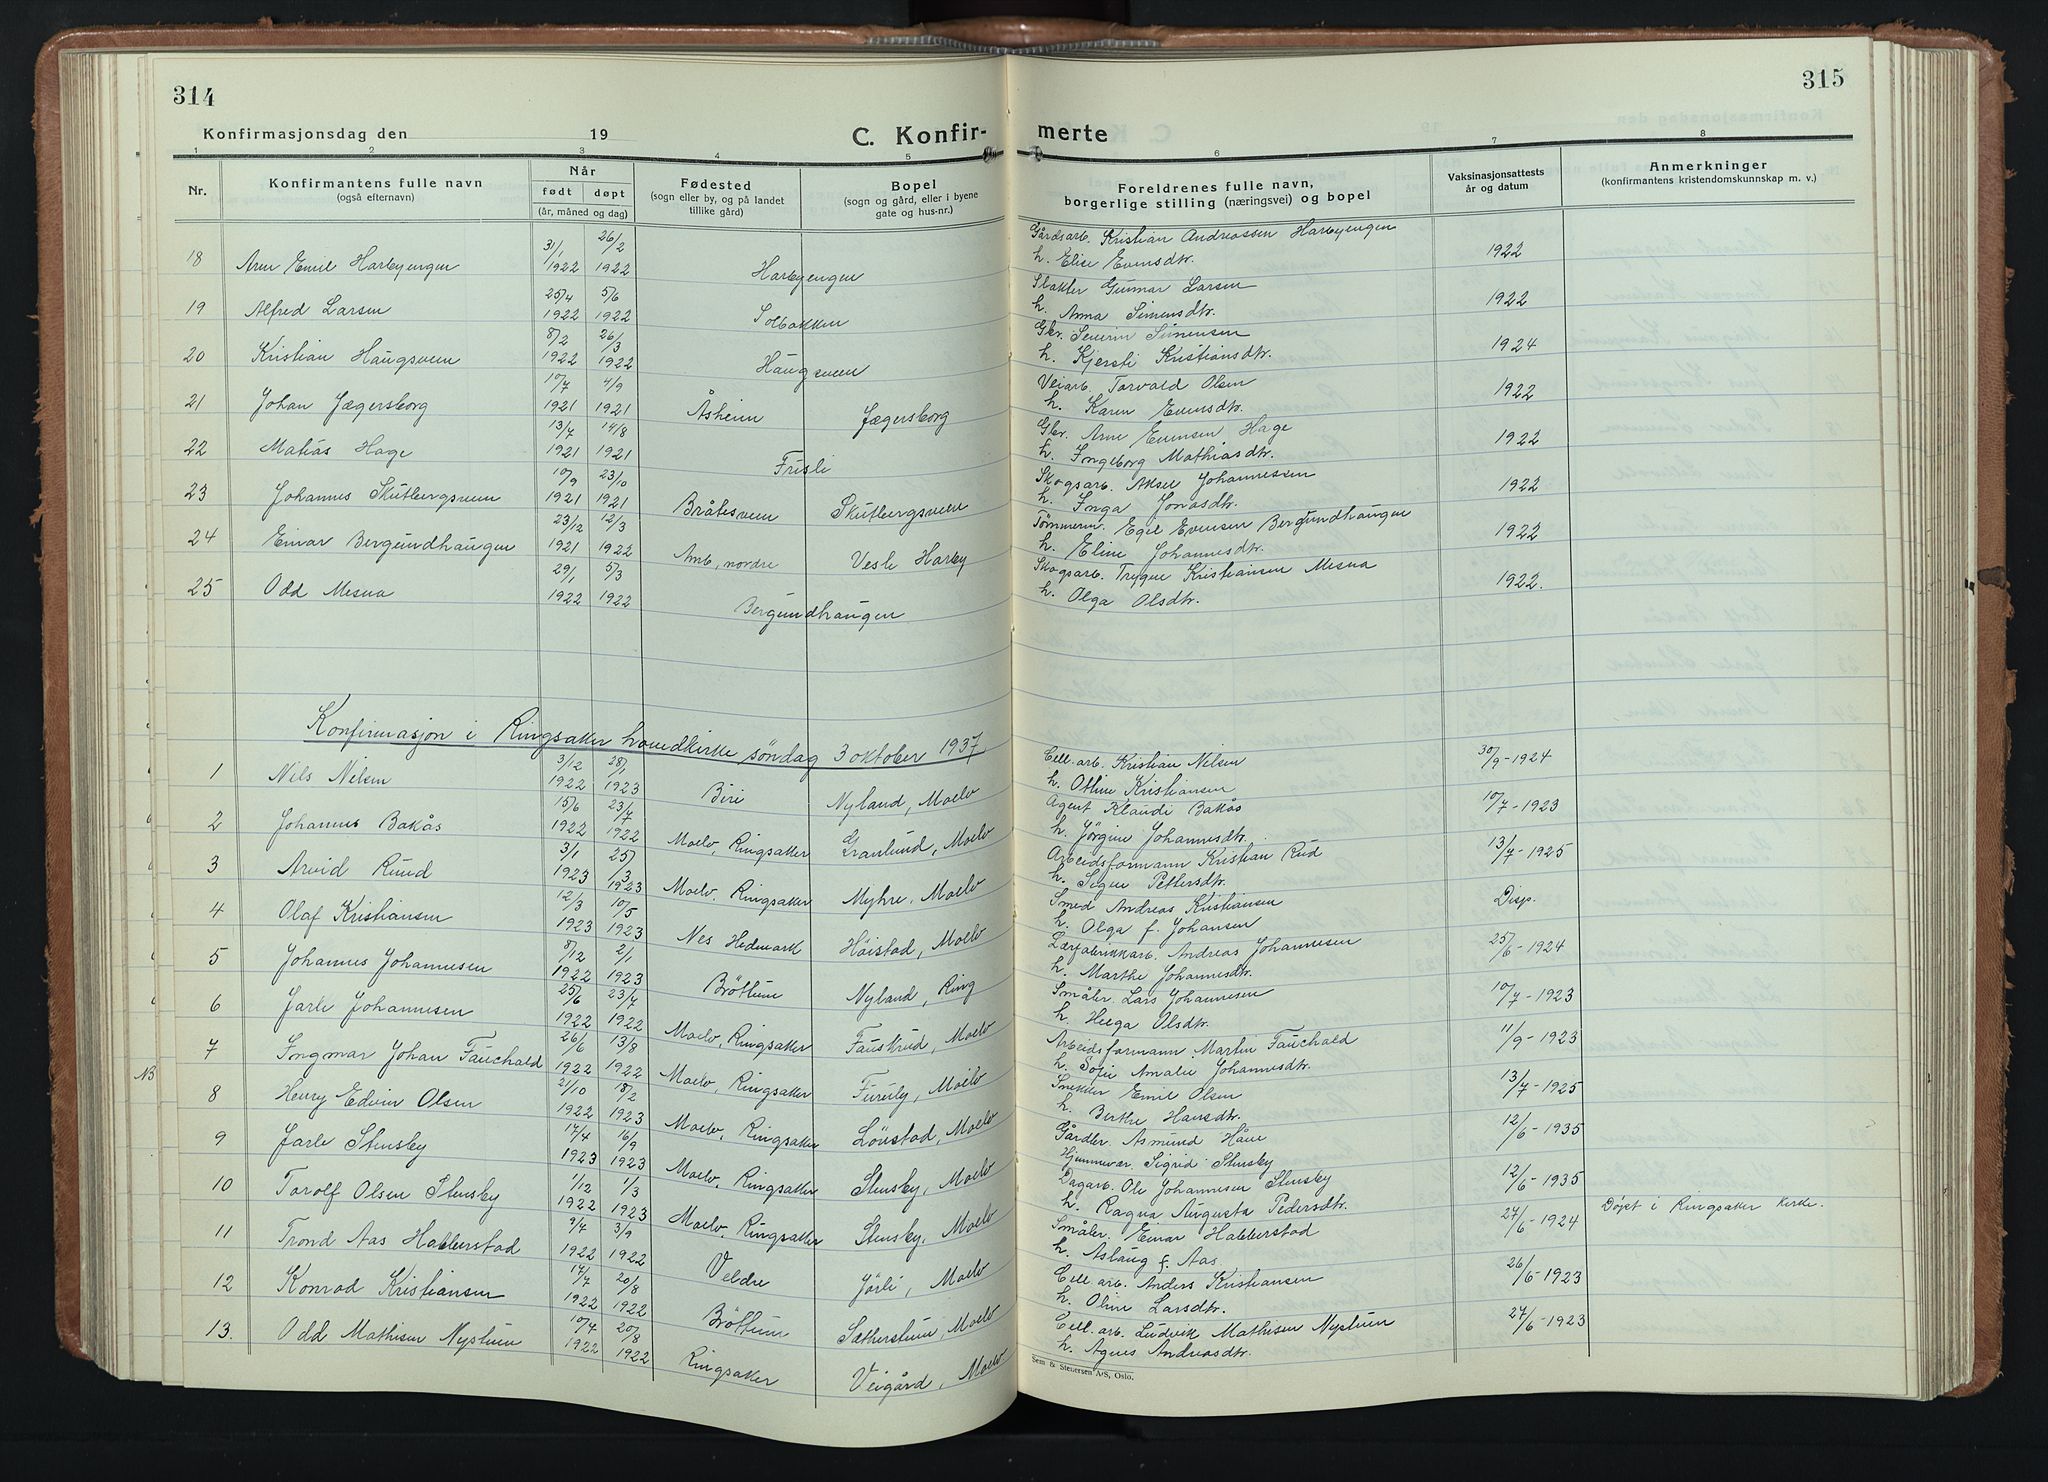 314
315
Konfirmasjonsdag den 19
C. Konfir-
merte
1 2 3 4 5 6 7 8
Nr.
Konfirmantens fulle navn
(også efternavn)
Når
født døpt
(år, måned og dag)
Fødested
(sogn eller by, og på landet
tillike gård)
Bopel
(sogn og gård, eller i byene
gate og hus-nr.)
Foreldrenes fulle navn,
borgerlige stilling (næringsvei) og bopel
Vaksinasjonsattests
år og datum
Anmerkninger
(konfirmantens kristendomskunnskap m. v.)
18 Arne Emil Harbyengen 31/1 1922 26/2 1922 Harbyengen Gårdsarb. Kristian Andreassen Harbyengen 1922
h. Elise Evensdtr.
19 Alfred Larsen 25/4 1922 5/6 1922 Solbakken Slakter Gunnar Larsen 1922
h. Anna Simensdtr.
20 Kristian Haugsveen 8/2 1922 26/3 1922 Haugsveen Gbr. Severin Simensen 1924
h. Kjersti Kristiansdtr.
21 Johan Jægersborg 10/7 1921 4/9 1921 Åsheim Jægersborg Veiarb. Torvald Olsen 1922
h. Karen Evensdtr.
22 Matias Hage 13/7 1921 14/8 1921 Frisli Gbr. Arne Evensen Hage 1922
h. Ingeborg Mathiasdtr.
23 Johannes Skutbergsveen 10/9 1921 23/10 1921 Bråtesveen Skutbergsveen Skogsarb. Aksel Johannessen 1922
h. Inga Jonasdtr.
24 Einar Bergundhaugen 23/12 1921 12/3 1922 Amb, nordre Vesle Harby Tømmerm. Egil Evensen Bergundhaugen 1922
h. Eline Johannesdtr.
25 Odd Mesna 29/1 1922 5/3 1922 Bergundhaugen Skogsarb. Trygve Kristiansen Mesna 1922.
h. Olga Olsdtr.
Konfirmasjon i Ringsaker hovedkirke søndag 3 oktober 1937
1 Nils Nilsen 3/12 1922 28/1 1923 Biri Nyland, Moelv Cell. arb. Kristian Nilsen 30/9-1924
h. Othine Kristiansen
2 Johannes Bakås 15/6 1922 23/7 1922 Moelv, Ringsaker Granlund, Moelv Agent Klaudi Bakås 10/7-1923
h. Jørgine Johannesdtr.
3 Arvid Ruud 3/1 1923 25/3 1923 Moelv, Ringsaker Myhre, Moelv Arbeidsformann Kristian Rud 13/7-1925
h. Signe Pettersdtr.
4 Olaf Kristiansen 12/3 1923 10/5 1923 Nes Hedmark Høistad, Moelv Smed Andreas Kristiansen Disp.
h. Olga f. Johansen
5 Johannes Johannesen 8/12 1922 2/1 1923 Brøttum Nyland, Ring Lærfabrikkarb. Andreas Johannesen 25/6-1924
h. Marthe Johannesdtr.
6 Jarle Johannesen 25/6 1922 23/7 1922 Moelv, Ringsaker Fauskrud, Moelv Småbr. Lars Johannesen 10/7-1923
h. Helga Olsdtr.
7 Ingmar Johan Fauchald 26/6 1922 13/8 1922 Moelv, Ringsaker Furuly, Moelv Arbeidsformann Martin Fauchald 11/9-1923
h. Sofie Amalie Johannesdtr.
NB 8 Henry Edvin Olsen 21/10 1922 18/2 1923 Moelv, Ringsaker Lønstad, Moelv Snekker Emil Olsen 13/7-1925
h. Berthe Hansdtr.
9 Jarle Stensby 17/4 1923 16/9 1923 Moelv, Ringsaker Stensby, Moelv Gårdbr. Asmund Håve 12/6-1935
Hjemmevær. Sigrid Stensby
10 Torolf Olsen Stensby 1/12 1922 1/3 1923 Moelv, Ringsaker Stensby, Moelv Dagarb. Ole Johannesen Stensby 12/6-1935
h. Ragna Augusta Pedersdtr.
11 Trond Aas Habberstad 9/4 1922 3/9 1922 Veldre Jørli, Moelv Småbr. Einar Habberstad 27/6-1924 Døpt i Ringsaker kirke.
h. Aslaug f. Aas
12 Konrad Kristiansen 17/7 1922 20/8 1922 Brøttum Sætherstuen, Moelv Cell. arb. Anders Kristiansen 26/6-1923
h. Oline Larsdtr.
13. Odd Mathisen Nystuen 10/4 1922 20/8 1922 Ringsaker Veigård, Moelv Cell. arb. Ludvik Mathisen Nystuen 27/6-1923
h. Agnes Andreasdtr.
Sem & Stenersen A/S, Oslo.